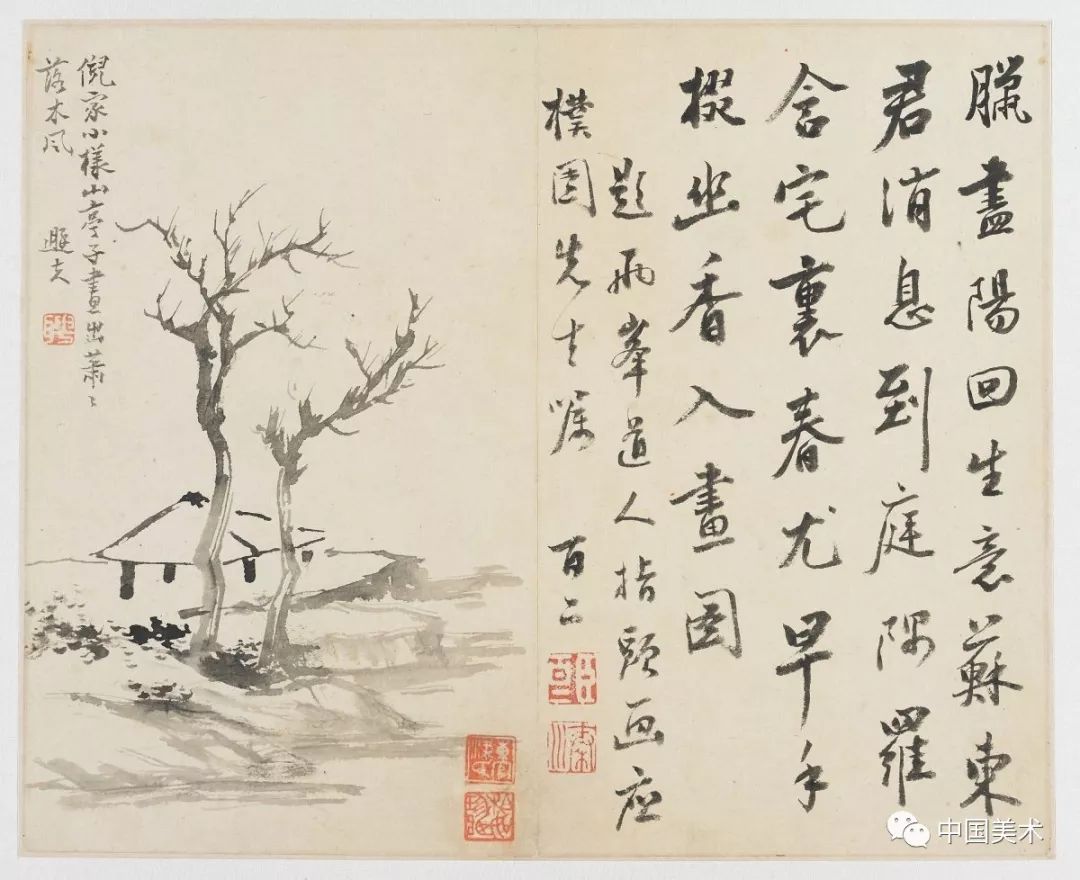 臘盡陽回生意蘇東
君消息到庭隅羅
含宅裏春尤早手
掇幽香入畫圖
題兩峯道人指頭画應
樸園先生囑
倪家小樣山亭子畫出蕭〻
落木風 遯夫
中国美术